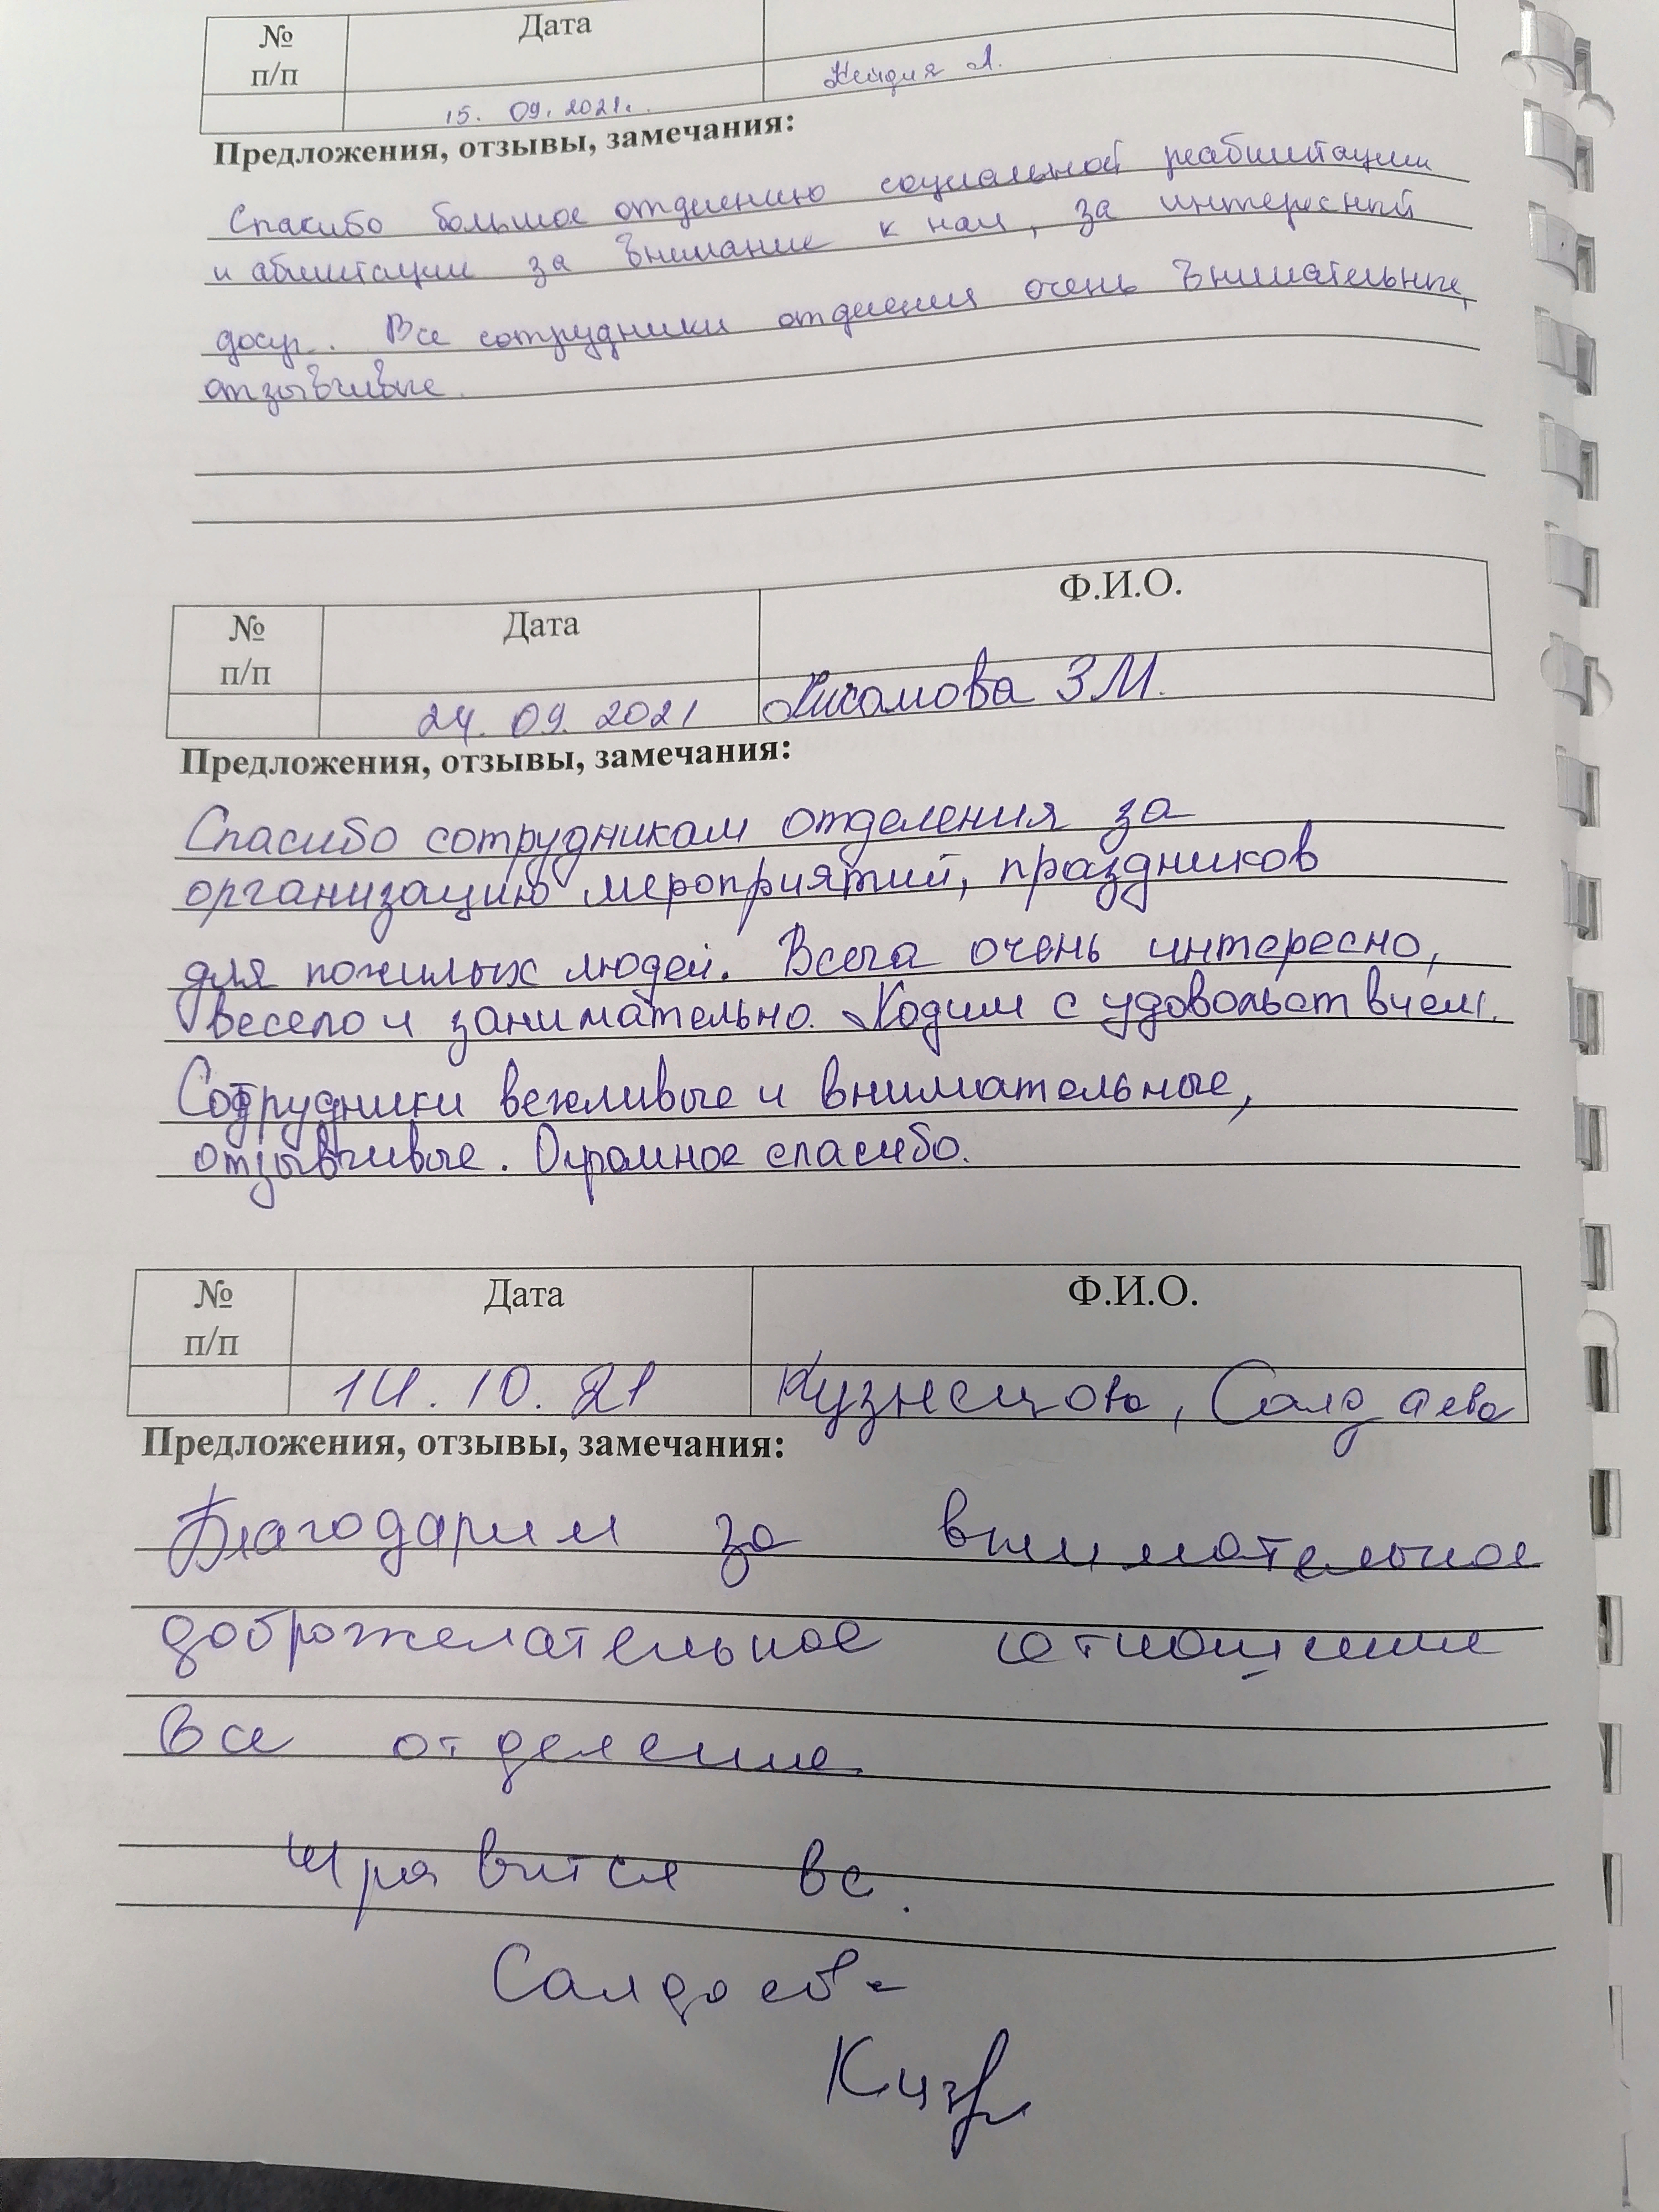 № Дата
п/п
15. 09. 2021г. А.
Предложения, отзывы, замечания:
Спасибо большое отделению социальной реабилитации
и абилитации за внимание к нам, за интересный
досуг. Все сотрудники отделения очень внимательные,
отзывчивые.
№ Дата Ф.И.О.
п/п
24. 09. 2021 Хисамова З М.
Предложения, отзывы, замечания:
Спасибо сотрудникам отделения за
организацию мероприятий, праздников
для пожилых людей. Всега очень интересно,
весело и занимательно. Ходим с удовольствием.
Сотрудники вежливые и внимательные,
отзывчивые. Огромное спасибо.
№ Дата Ф.И.О.
п/п
14. 10. 21 Кузнецова, Салдаева
Предложения, отзывы, замечания:
Благодарим за внимательное
доброжелательное отношение
все отделение.
Нравится все.
Салдаева